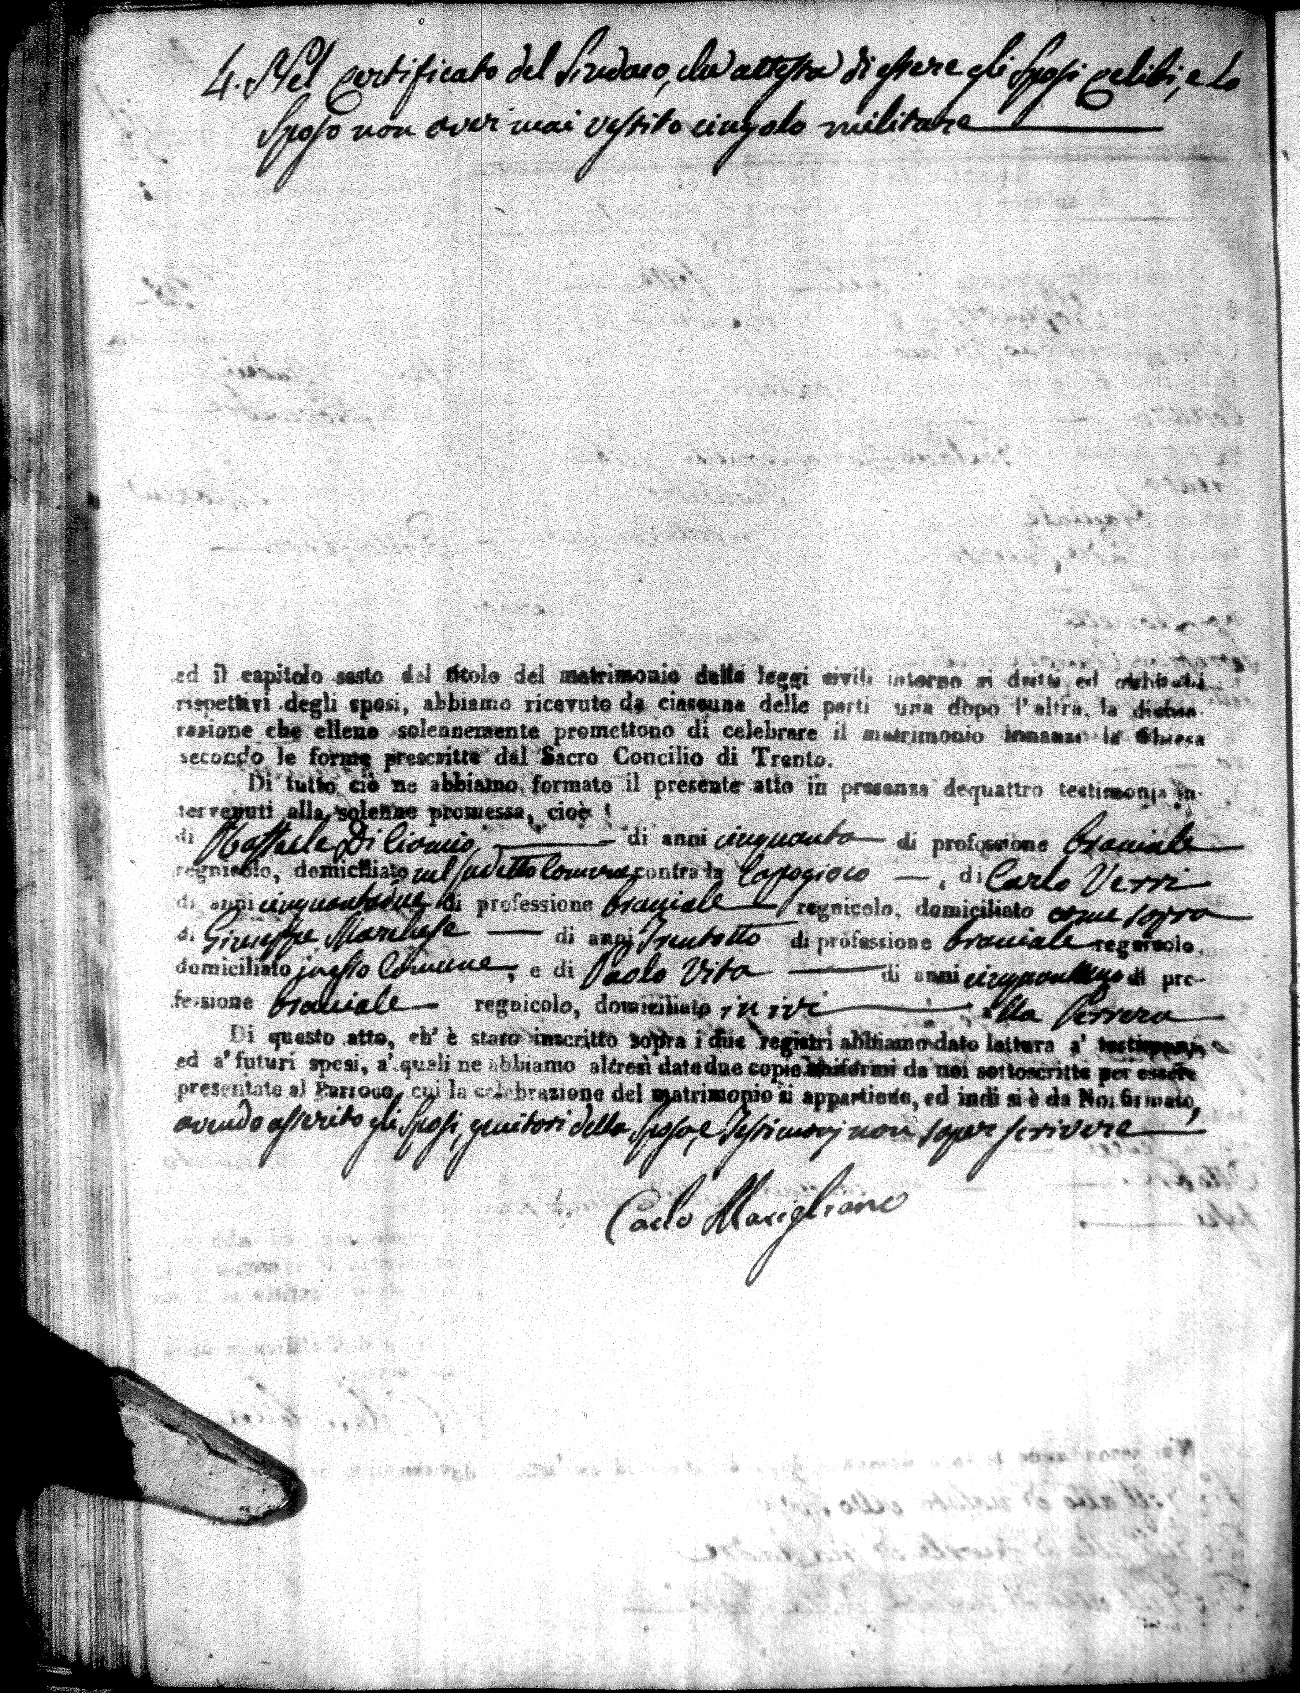 4. Nel certificato del Sindaco, che attesta di essere gli Sposi celibi, e lo
Sposo non aver mai vestito cingolo militare
ed il capitolo sesto del titolo del matrimonio delle leggi civili intorno ai dritti ed obblighi
rispettivi degli sposi, abbiamo ricevuto da ciascuna delle parti una dopo l'altra, la dichia-
razione che elleno solennemente promettono di celebrare il matrimonio innanzi la Chiesa
secondo le forme prescritte dal Sacro Concilio di Trento.
Di tutto ciò ne abbiamo formato il presente atto in presenza dequattro testimonj in-
tervenuti alla solenne promessa, cioè
di Raffaele Di Cionno di anni cinquanta di professione braciale
regnicolo, domiciliato nel sudetto Comune contrada Capogioco, di Carlo Verri
di anni cinquantadue di professione braciale regnicolo, domiciliato come sopra
di Giuseppe Marchese di anni Trentotto di professione braciale regnicolo,
domiciliato in questo Comune, e di Paolo Vito di anni di pro-
fessione braciale regnicolo, domiciliato in ivi alla
Di questo atto, ch' è stato inscritto sopra i due registri abbiamo dato lettura a' testimonj
ed a' futuri sposi, a' quali ne abbiamo altresì date due copie uniformi da noi sottoscritte per essere
presentate al Parroco, cui la celebrazione del matrimonio si appartiene, ed indi si è da Noi firmato,
avendo asserito gli Sposi, genitori della Sposa, e Testimonj non saper scrivere
Carlo Marigliano